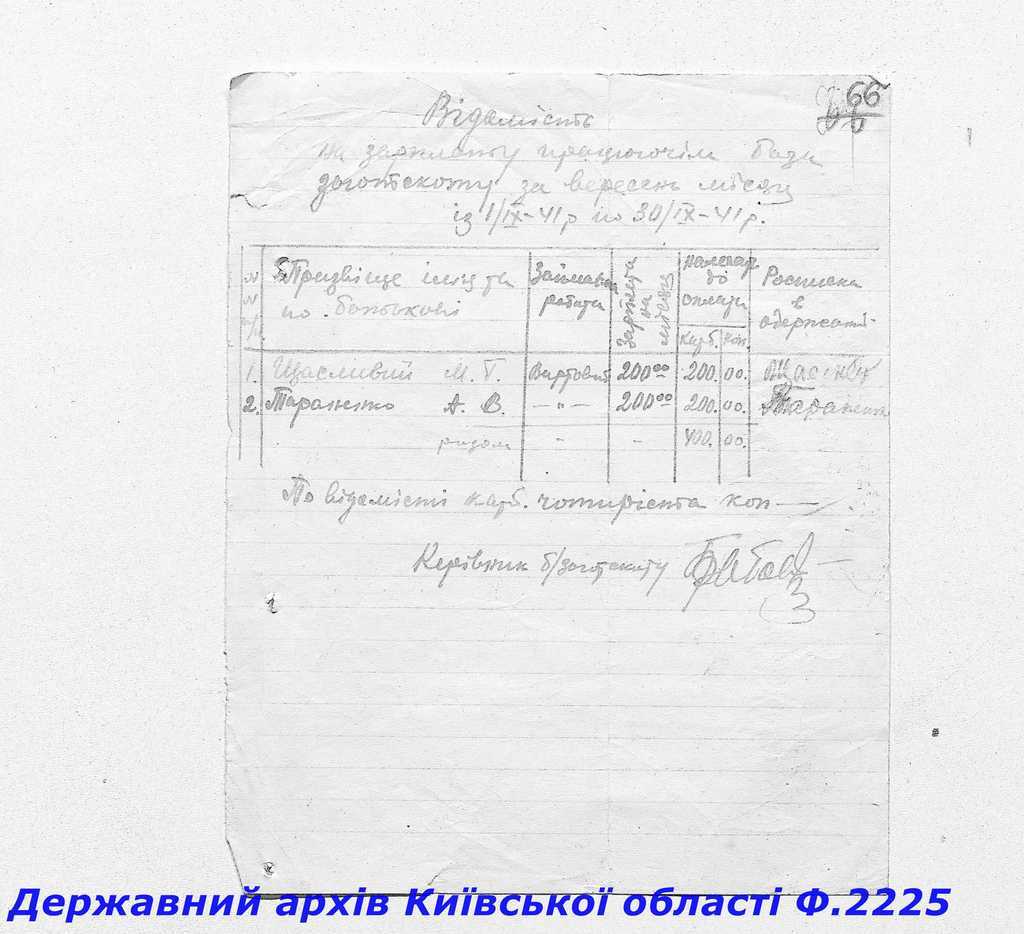 66
Відамість
на зарплату працюючім бази
заготскоту за вересень місяц
із 1/IX-41 р по 30/IX-41 р.
№ № п/п
Прізвіще імя та по батькові
Займаєма работа
Зарплата за місяц
належит до сплати
Карб. Коп.
Росписка в одержанні
1. Щасливий М. Г. Вартовий 200 00 200. 00.
2. Тараненко А. В. — " — 200 00 200. 00. Тараненко
разом - - 400. 00.
По відамісті карб. чотиріста коп —
Керівник б/заготскоту
Державний архів Київської області Ф.2225